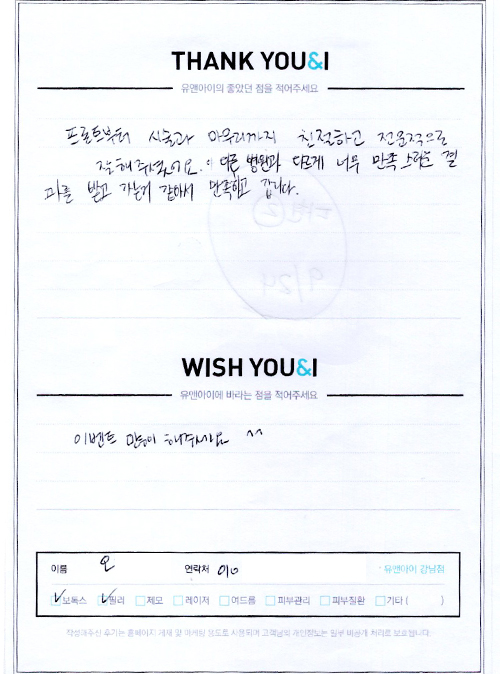 THANK YOU&I
유앤아이의 좋았던 점을 적어주세요
프론트부터 시술과 마무리까지 친절하고 전문적으로
잘해주셨어요. 다른 병원과 다르게 너무 만족스러운 결
과를 받고 가는거 같아서 만족하고 갑니다.
WISH YOU&I
유앤아이에 바라는 점을 적어주세요
이벤트 많이 해주세요 ^^
이름 오 연락처 010 유앤아이 강남점
보톡스 필러 제모 레이저 여드름 피부관리 피부질환 기타 ( )
작성해주신 후기는 홈페이지 게재 및 마케팅 용도로 사용되며 고객님의 개인정보는 일부 비공개 처리로 보호됩니다.